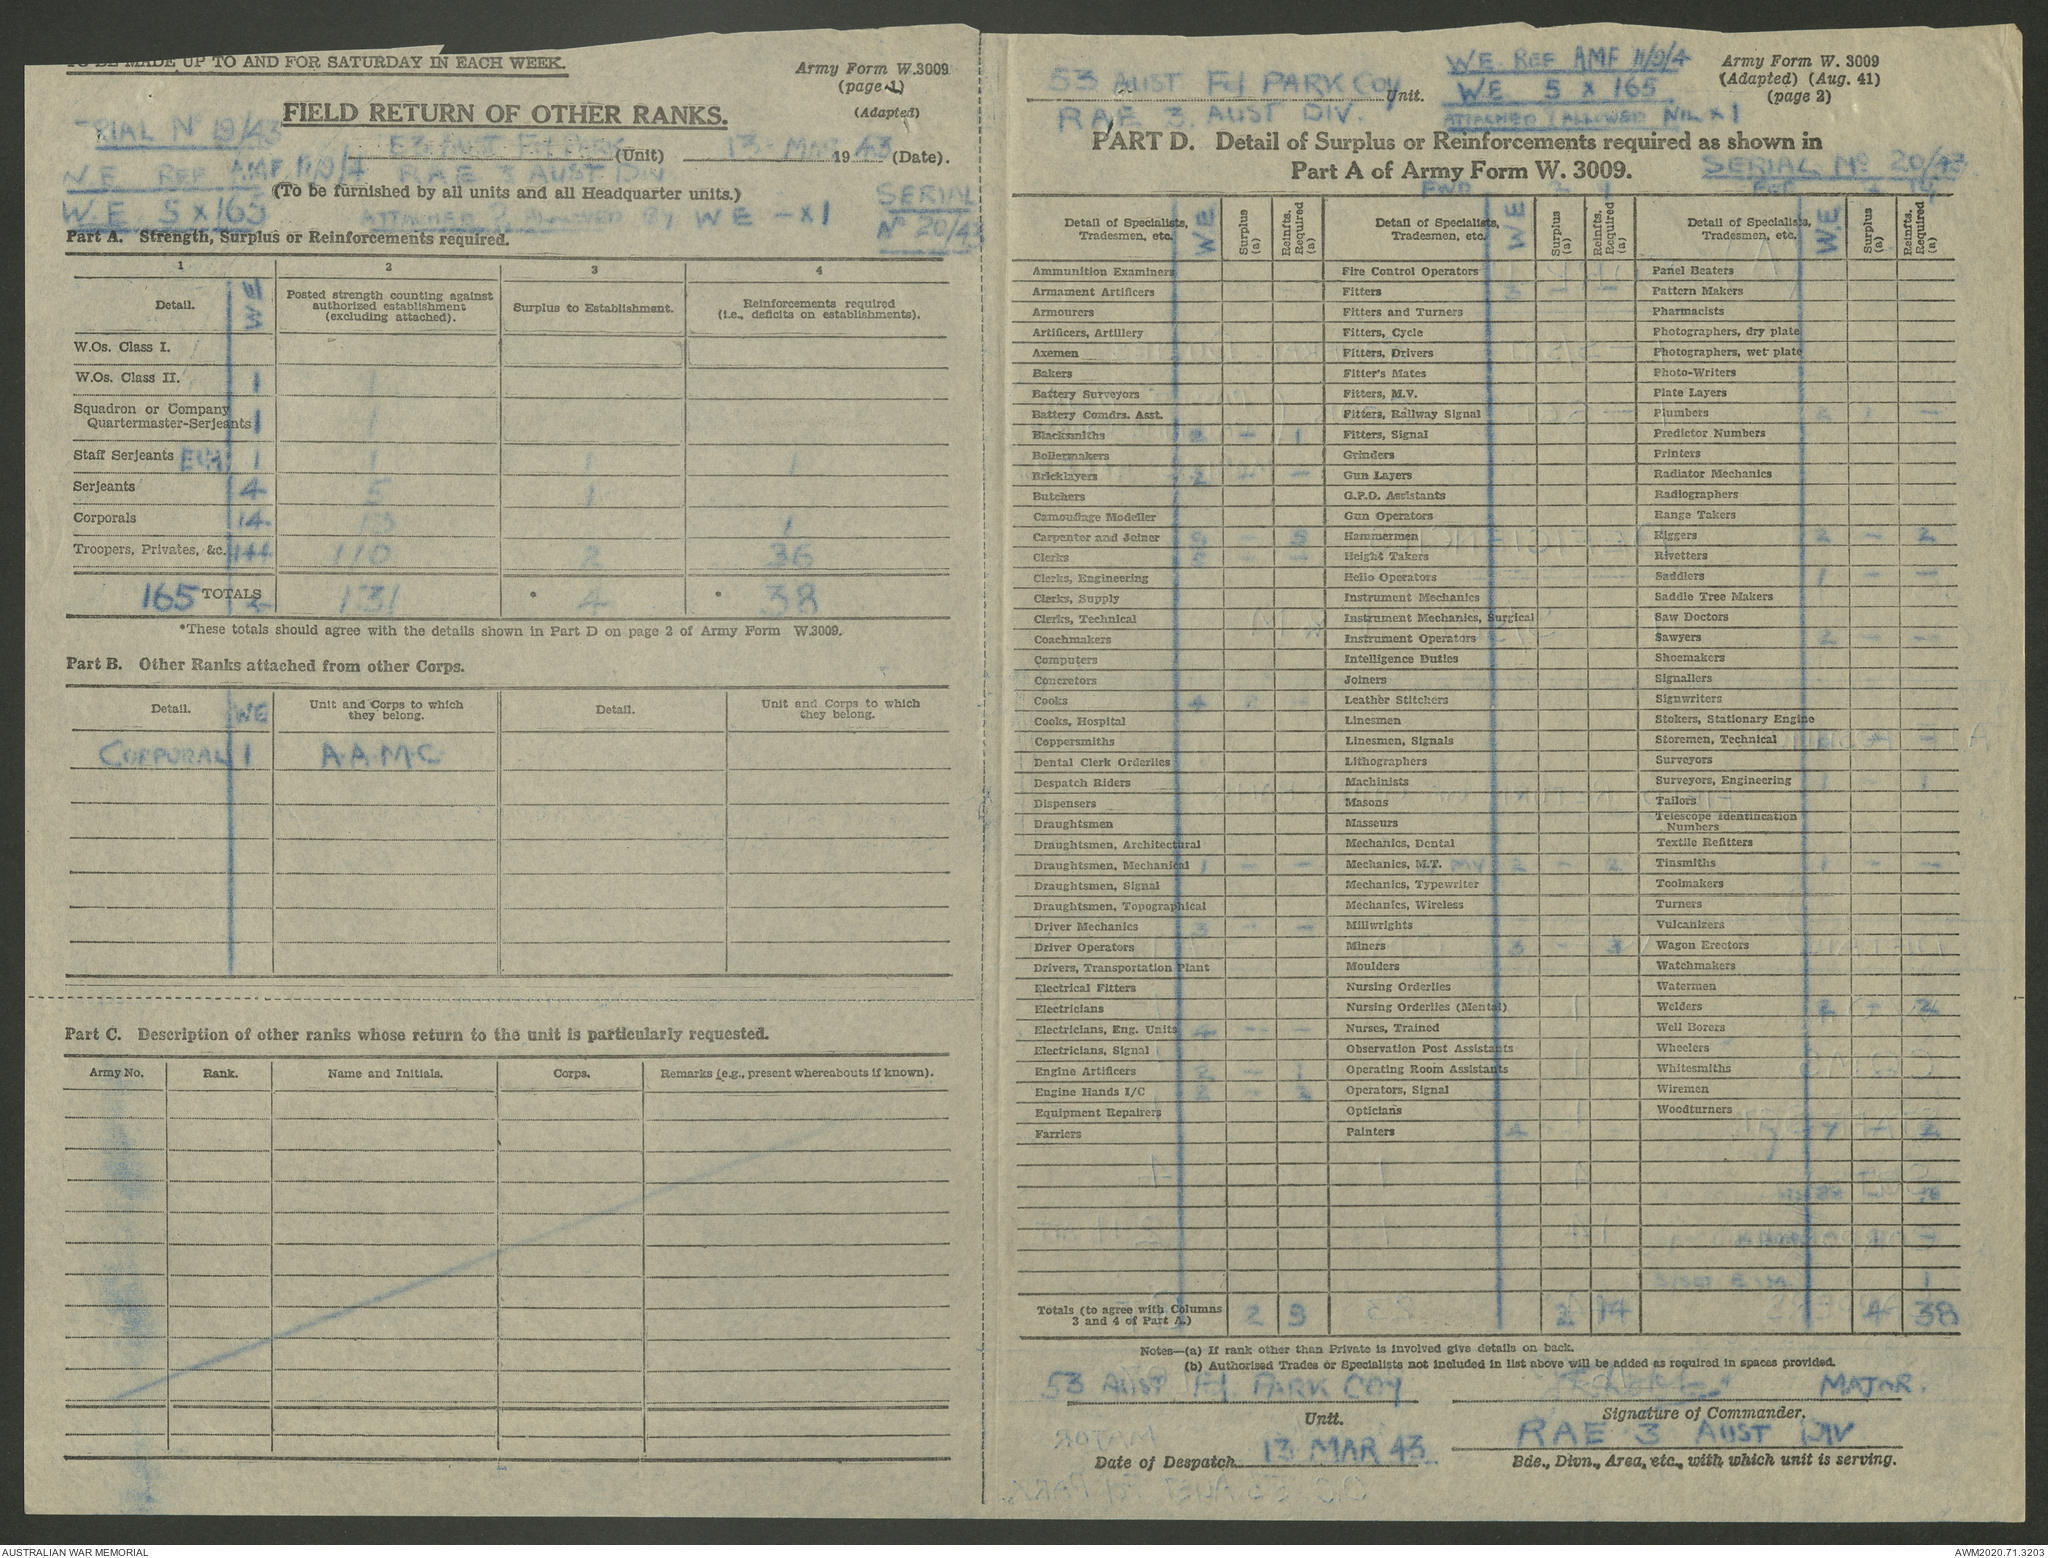 TO BE MADE UP TO AND FOR SATURDAY IN EACH WEEK.
Army Form W.3009
(page 1)
(Adapted)
FIELD RETURN OF OTHER RANKS.
SERIAL No 19/43
53 AUST Fd PARK (Unit) 13 MAR 1943 (Date).
W.E. REF AMF 11/9/4 RAE 3 AUST DIV
(To be furnished by all units and all Headquarter units.)
W.E. 5 x 165
ATTACHED & ALLOWED BY WE - x 1
SERIAL
No 20/43
Part A. Strength, Surplus or Reinforcements required.
1 2 3 4
Detail. WE Posted strength counting against authorized establishment (excluding attached). Surplus to Establishment. Reinforcements required (i.e., deficits on establishments).
W.Os. Class I.
W.Os. Class II. 1 1
Squadron or Company Quartermaster-Serjeants 1 1
Staff Serjeants 1 1 1 1
Serjeants 4 5 1
Corporals 14 13 1
Troopers, Privates, &c. 144 110 2 36
165 TOTALS 131 * 4 * 38
*These totals should agree with the details shown in Part D on page 2 of Army Form W.3009.
Part B. Other Ranks attached from other Corps.
Detail. WE Unit and Corps to which they belong. Detail. Unit and Corps to which they belong.
CORPORAL 1 A.A.M.C.
Part C. Description of other ranks whose return to the unit is particularly requested.
Army No. Rank. Name and Initials. Corps. Remarks (e.g., present whereabouts if known).
53 AUST Fd PARK COY Unit.
RAE 3 AUST DIV.
W.E. REF AMF 11/9/4
W.E 5 x 165
ATTACHED & ALLOWED NIL x 1
Army Form W. 3009
(Adapted) (Aug. 41)
(page 2)
PART D. Detail of Surplus or Reinforcements required as shown in
Part A of Army Form W. 3009.
SERIAL No 20/43
Detail of Specialists, Tradesmen, etc. WE Surplus (a) Reinfts. Required (a)
Ammunition Examiners
Armament Artificers
Armourers
Artificers, Artillery
Axemen
Bakers
Battery Surveyors
Battery Comdrs. Asst.
Blacksmiths 2 - 1
Boilermakers
Bricklayers 2 - -
Butchers
Camouflage Modeller
Carpenter and Joiner
Clerks
Clerks, Engineering
Clerks, Supply
Clerks, Technical
Coachmakers
Computers
Concretors
Cooks 4
Cooks, Hospital
Coppersmiths
Dental Clerk Orderlies
Despatch Riders
Dispensers
Draughtsmen
Draughtsmen, Architectural
Draughtsmen, Mechanical 1 - -
Draughtsmen, Signal
Draughtsmen, Topographical
Driver Mechanics 3 - -
Driver Operators
Drivers, Transportation Plant
Electrical Fitters
Electricians
Electricians, Eng. Units 4 - -
Electricians, Signal
Engine Artificers 2 - 1
Engine Hands I/C
Equipment Repairers
Farriers
Totals (to agree with Columns 3 and 4 of Part A.) 2 9
Detail of Specialists, Tradesmen, etc. WE Surplus (a) Reinfts. Required (a)
Fire Control Operators
Fitters
Fitters and Turners
Fitters, Cycle
Fitters, Drivers
Fitter's Mates
Fitters, M.V.
Fitters, Railway Signal
Fitters, Signal
Grinders
Gun Layers
G.P.O. Assistants
Gun Operators
Hammermen
Height Takers
Helio Operators
Instrument Mechanics
Instrument Mechanics, Surgical
Instrument Operators
Intelligence Duties
Joiners
Leather Stitchers
Linesmen
Linesmen, Signals
Lithographers
Machinists
Masons
Masseurs
Mechanics, Dental
Mechanics, M.T. MV 2 - 2
Mechanics, Typewriter
Mechanics, Wireless
Millwrights
Miners 3 - 3
Moulders
Nursing Orderlies
Nursing Orderlies (Mental)
Nurses, Trained
Observation Post Assistants
Operating Room Assistants
Operators, Signal
Opticians
Painters 4
2 14
Detail of Specialists, Tradesmen, etc. W.E Surplus (a) Reinfts. Required (a)
Panel Beaters
Pattern Makers
Pharmacists
Photographers, dry plate
Photographers, wet plate
Photo-Writers
Plate Layers
Plumbers
Predictor Numbers
Printers
Radiator Mechanics
Radiographers
Range Takers
Riggers 2 - 2
Rivetters
Saddlers 1 - -
Saddle Tree Makers
Saw Doctors
Sawyers 2 - -
Shoemakers
Signallers
Signwriters
Stokers, Stationary Engine
Storemen, Technical
Surveyors
Surveyors, Engineering 1 - 1
Tailors
Telescope Identification Numbers
Textile Refitters
Tinsmiths 1 - -
Toolmakers
Turners
Vulcanizers
Wagon Erectors
Watchmakers
Watermen
Welders 2 - 2
Well Borers
Wheelers
Whitesmiths
Wiremen
Woodturners
4 38
Notes—(a) If rank other than Private is involved give details on back.
(b) Authorised Trades or Specialists not included in list above will be added as required in spaces provided.
53 AUST Fd. PARK COY
Unit.
MAJOR.
Signature of Commander.
Date of Despatch 13 MAR 43
RAE 3 AUST DIV
Bde., Divn., Area, etc., with which unit is serving.
AUSTRALIAN WAR MEMORIAL
AWM2020.71.3203